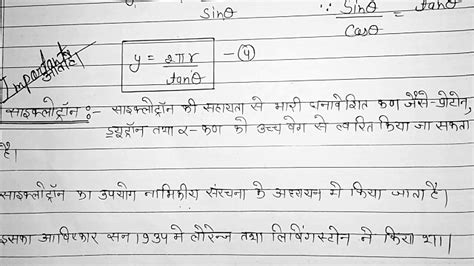 Sinθ
Sinθ / Cosθ = tanθ
y = 2πr / tanθ — (4)
Important
साइक्लोट्रॉन :- साइक्लोट्रॉन की सहायता से भारी धनावेशित कण जैसे- प्रोटोन,
ड्यूट्रॉन तथा α- कण को उच्च वेग से त्वरित किया जा सकता
है।
साइक्लोट्रॉन का उपयोग नाभिकीय संरचना के अध्ययन मे किया जाता है।
इसका आविष्कार सन 1934 मे लोरेन्ज तथा लिविंगस्टोन ने किया था।